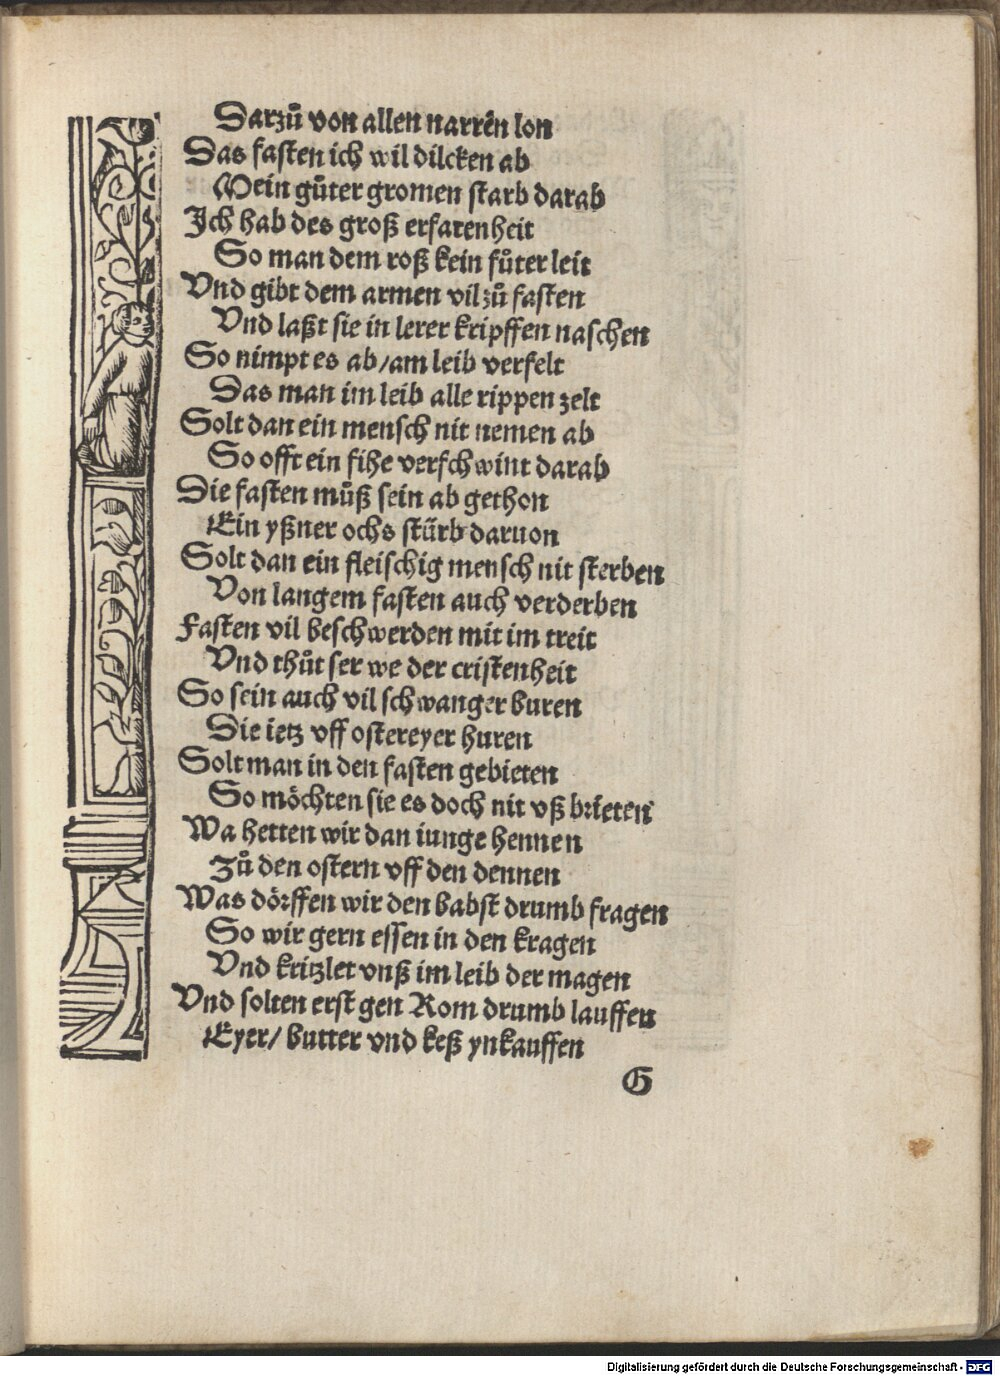 Darzů von allen narrẽn lon
Das fasten ich wil dilcken ab
Mein gůter gromen starb darab
Ich hab des groß erfarenheit
So man dem roß kein fůter leit
Vnd gibt dem armen vil zů fasten
Vnd laßt sie in lerer kripffen naschen
So nimpt es ab/am leib verfelt
Das man im leib alle rippen zelt
Solt dan ein mensch nit nemen ab
So offt ein fihe verschwint darab
Die fasten můß sein ab gethon
Ein yßner ochs stürb daruon
Solt dan ein fleischig mensch nit sterben
Von langem fasten auch verderben
Fasten vil beschwerden mit im treit
Vnd thůt ser we der cristenheit
So sein auch vil schwanger buren
Die ietz vff ostereyer huren
Solt man in den fasten gebieten
So möchten sie es doch nit vß brieten
Wa hetten wir dan iunge hennen
Zů den ostern vff den dennen
Was dörffen wir den babst drumb fragen
So wir gern essen in den kragen
Vnd kritzlet vnß im leib der magen
Vnd solten erst gen Rom drumb lauffen
Eyer/ butter vnd keß ynkauffen
G
Digitalisierung gefördert durch die Deutsche Forschungsgemeinschaft - DFG